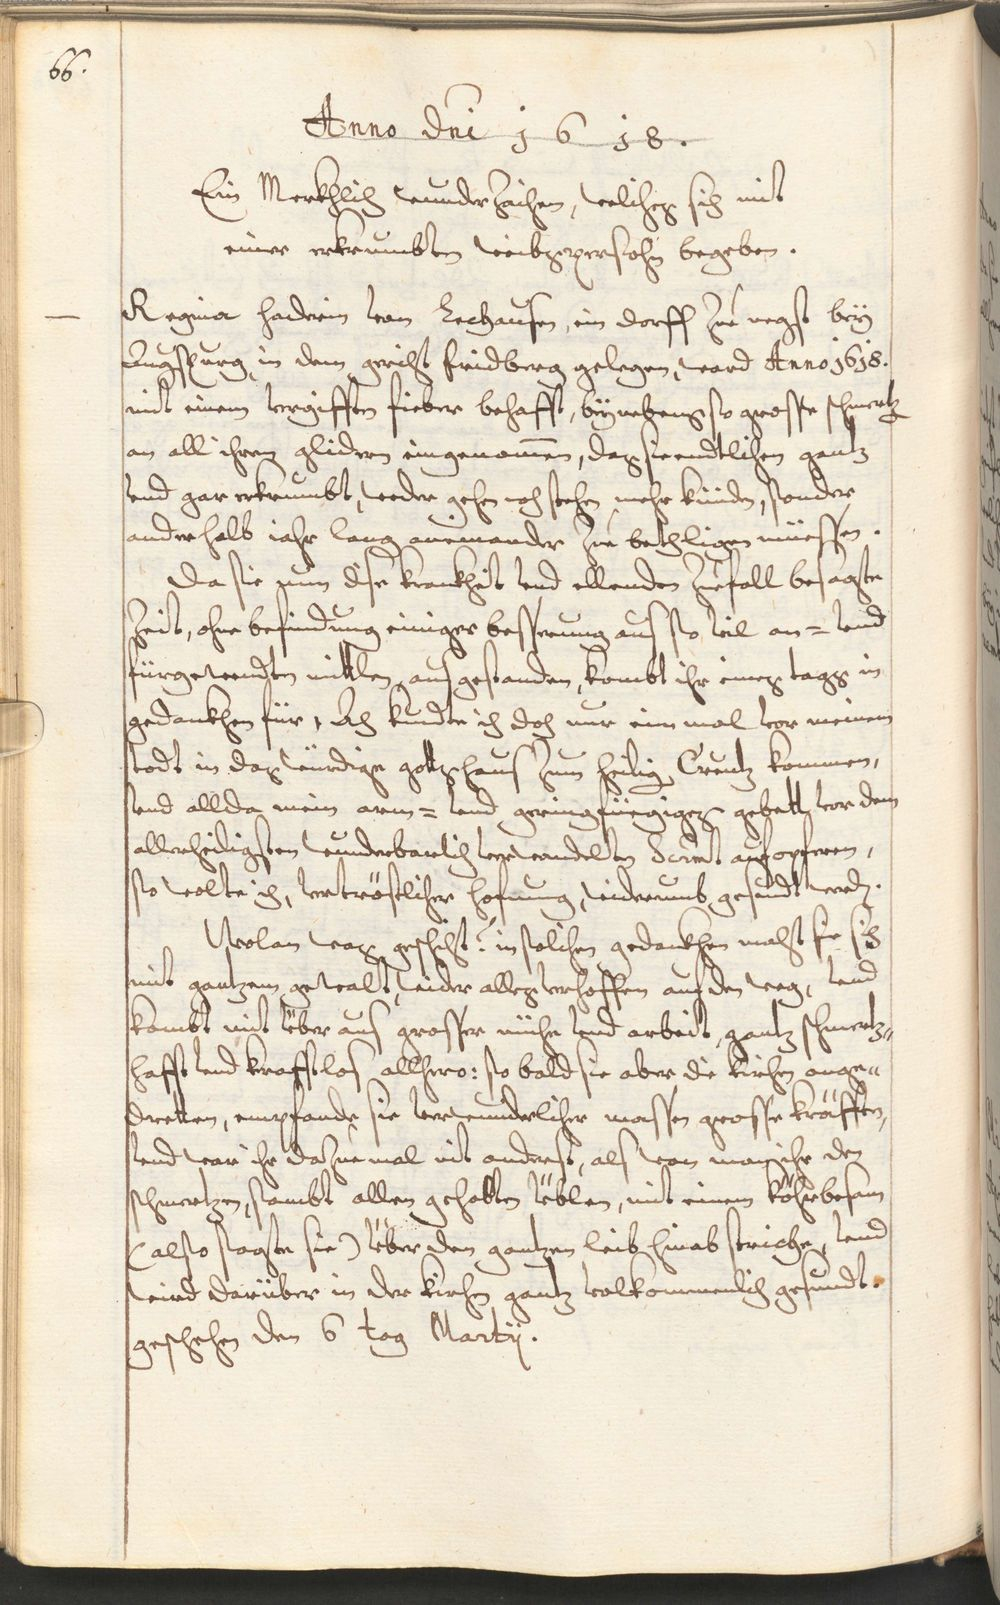 66.
Anno Dni 1618.
Ein Merckhlich wunderzaichen, welches sich mit
einer erkrumbten weibspersohn begeben.
Regina Haderin von Lechausen, ein dorff zue negst bey
Augspurg, in dem gericht Fridberg gelegen, ward Anno 1618.
mit einem vergifften fieber behafft, beynebens so grosse schmertz
an all ihren glidern eingenommen, das sie endtlichen gantz
vnd gar erkrumbt, weder gehn noch stehn mehr künden, sonder
anderhalb iahr lang aneinander zue beth ligen müessen.
Da sie nun dise kranckheit vnd ellenden zuefall besagte
Zeit, ohne befindung einiger besserung auf so vil an= vnd
fürgewendten mittlen, ausgestanden, kombt ihr eines tags in
gedankhen für, Ach kundte ich doch nur ein mal vor meinem
todt in das würdige gottshaus zum heilig Creutz kommen,
vnd allda mein arm= vnd geringfüegiges gebett vor dem
allerheiligsten wunderbarlich verwandelten Scrmt aufopferen,
so wolte ich, vertröstlicher hofnung, widerumb gesundt werd.
Wolan was geschicht? in solichen gedankhen macht sie sich
mit gantzem gewalt, wider alles verhoffen auf den weg, vnd
kombt mit über aus grosser mühe vnd arbeit, gantz schmertz=
hafft vnd krafftlos allhero: so bald sie aber die kirchen ange=
dretten, empfande sie verwunderlicher massen grosse kräfften,
vnd war ihr dazuemal nit anderst, als wan man ihr den
schmertzen, sambt allen gehabten üblen, mit einem köhrbesam
(also sagte sie) über den gantzen leib hinab striche, vnd
wird darüber in der kirchen gantz volkommenlich gesundt.
geschehen den 6 tag Martij.